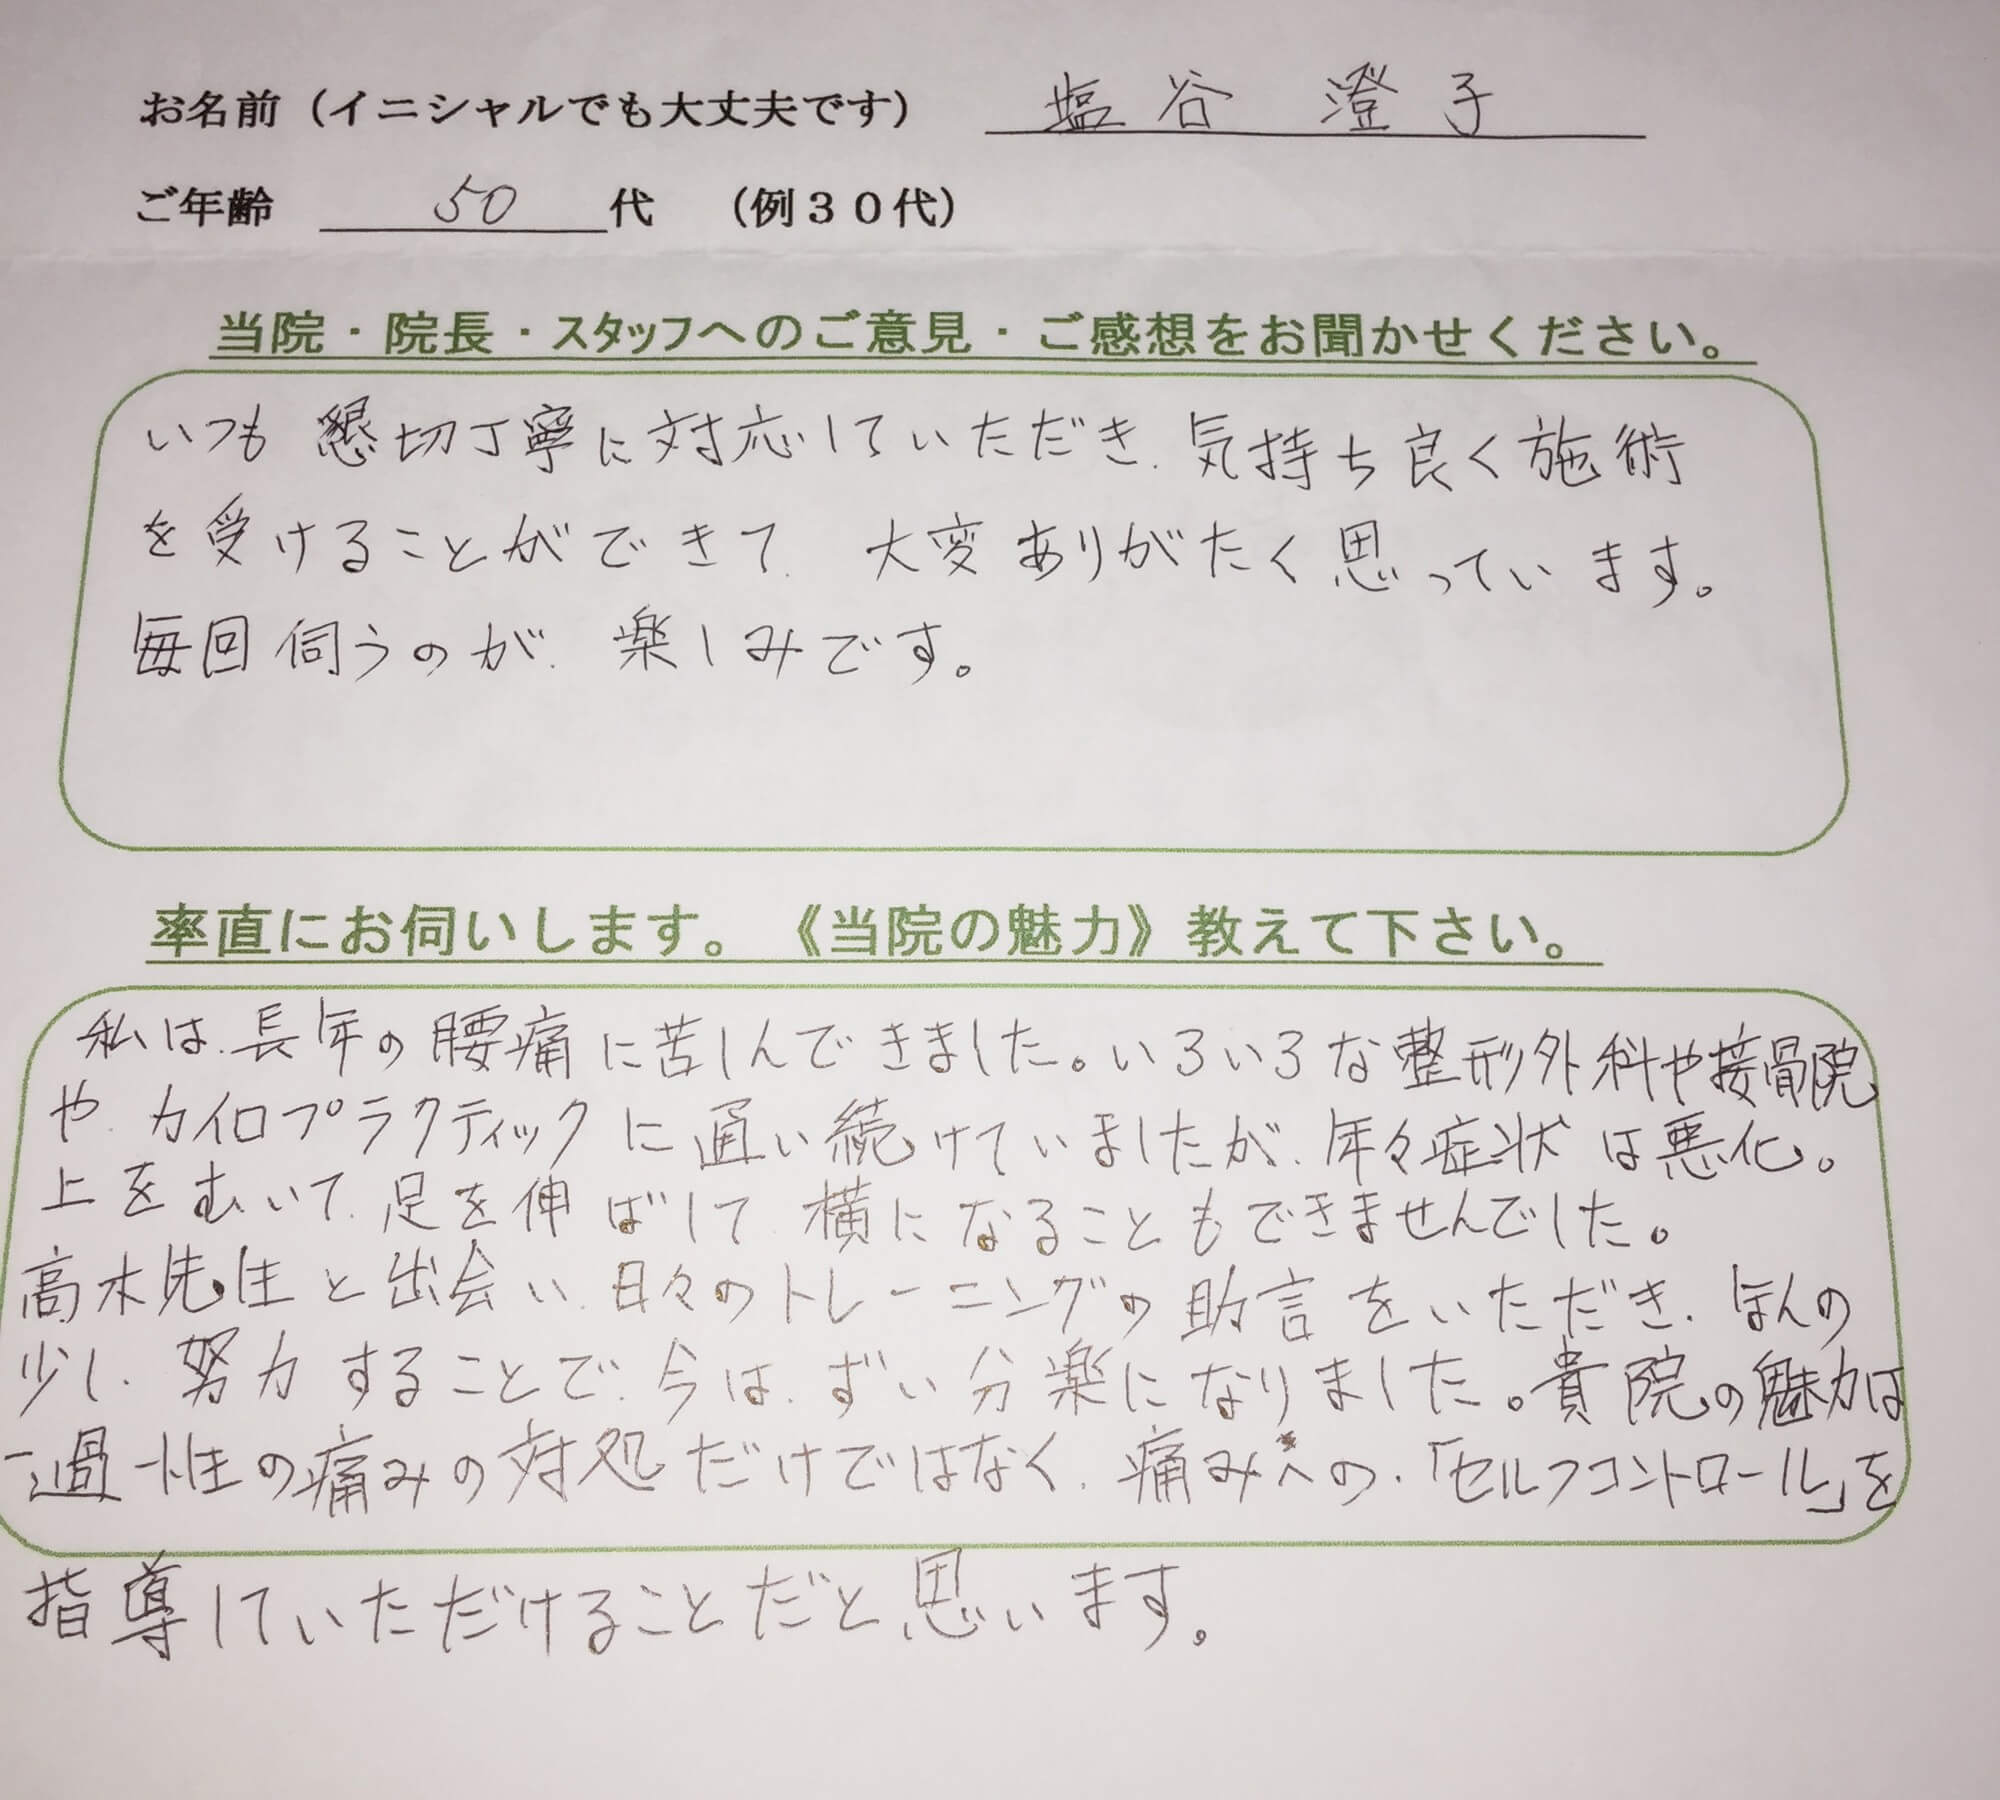 お名前（イニシャルでも大丈夫です） 塩谷 澄子
ご年齢 50 代 （例３０代）
当院・院長・スタッフへのご意見・ご感想をお聞かせください。
いつも 懇切丁寧に対応していただき、気持ち良く施術
を受けることができて、大変ありがたく思っています。
毎回伺うのが、楽しみです。
率直にお伺いします。《当院の魅力》教えて下さい。
私は、長年の腰痛に苦しんできました。いろいろな整形外科や接骨院
や、カイロプラクティックに通い続けていましたが、年々症状は悪化。
上をむいて、足を伸ばして、横になることもできませんでした。
高木先生と出会い、日々のトレーニングの助言をいただき、ほんの
少し、努力することで、今は、ずい分楽になりました。貴院の魅力は
一過性の痛みの対処だけではなく、痛みへの、「セルフコントロール」を
指導していただけることだと思います。